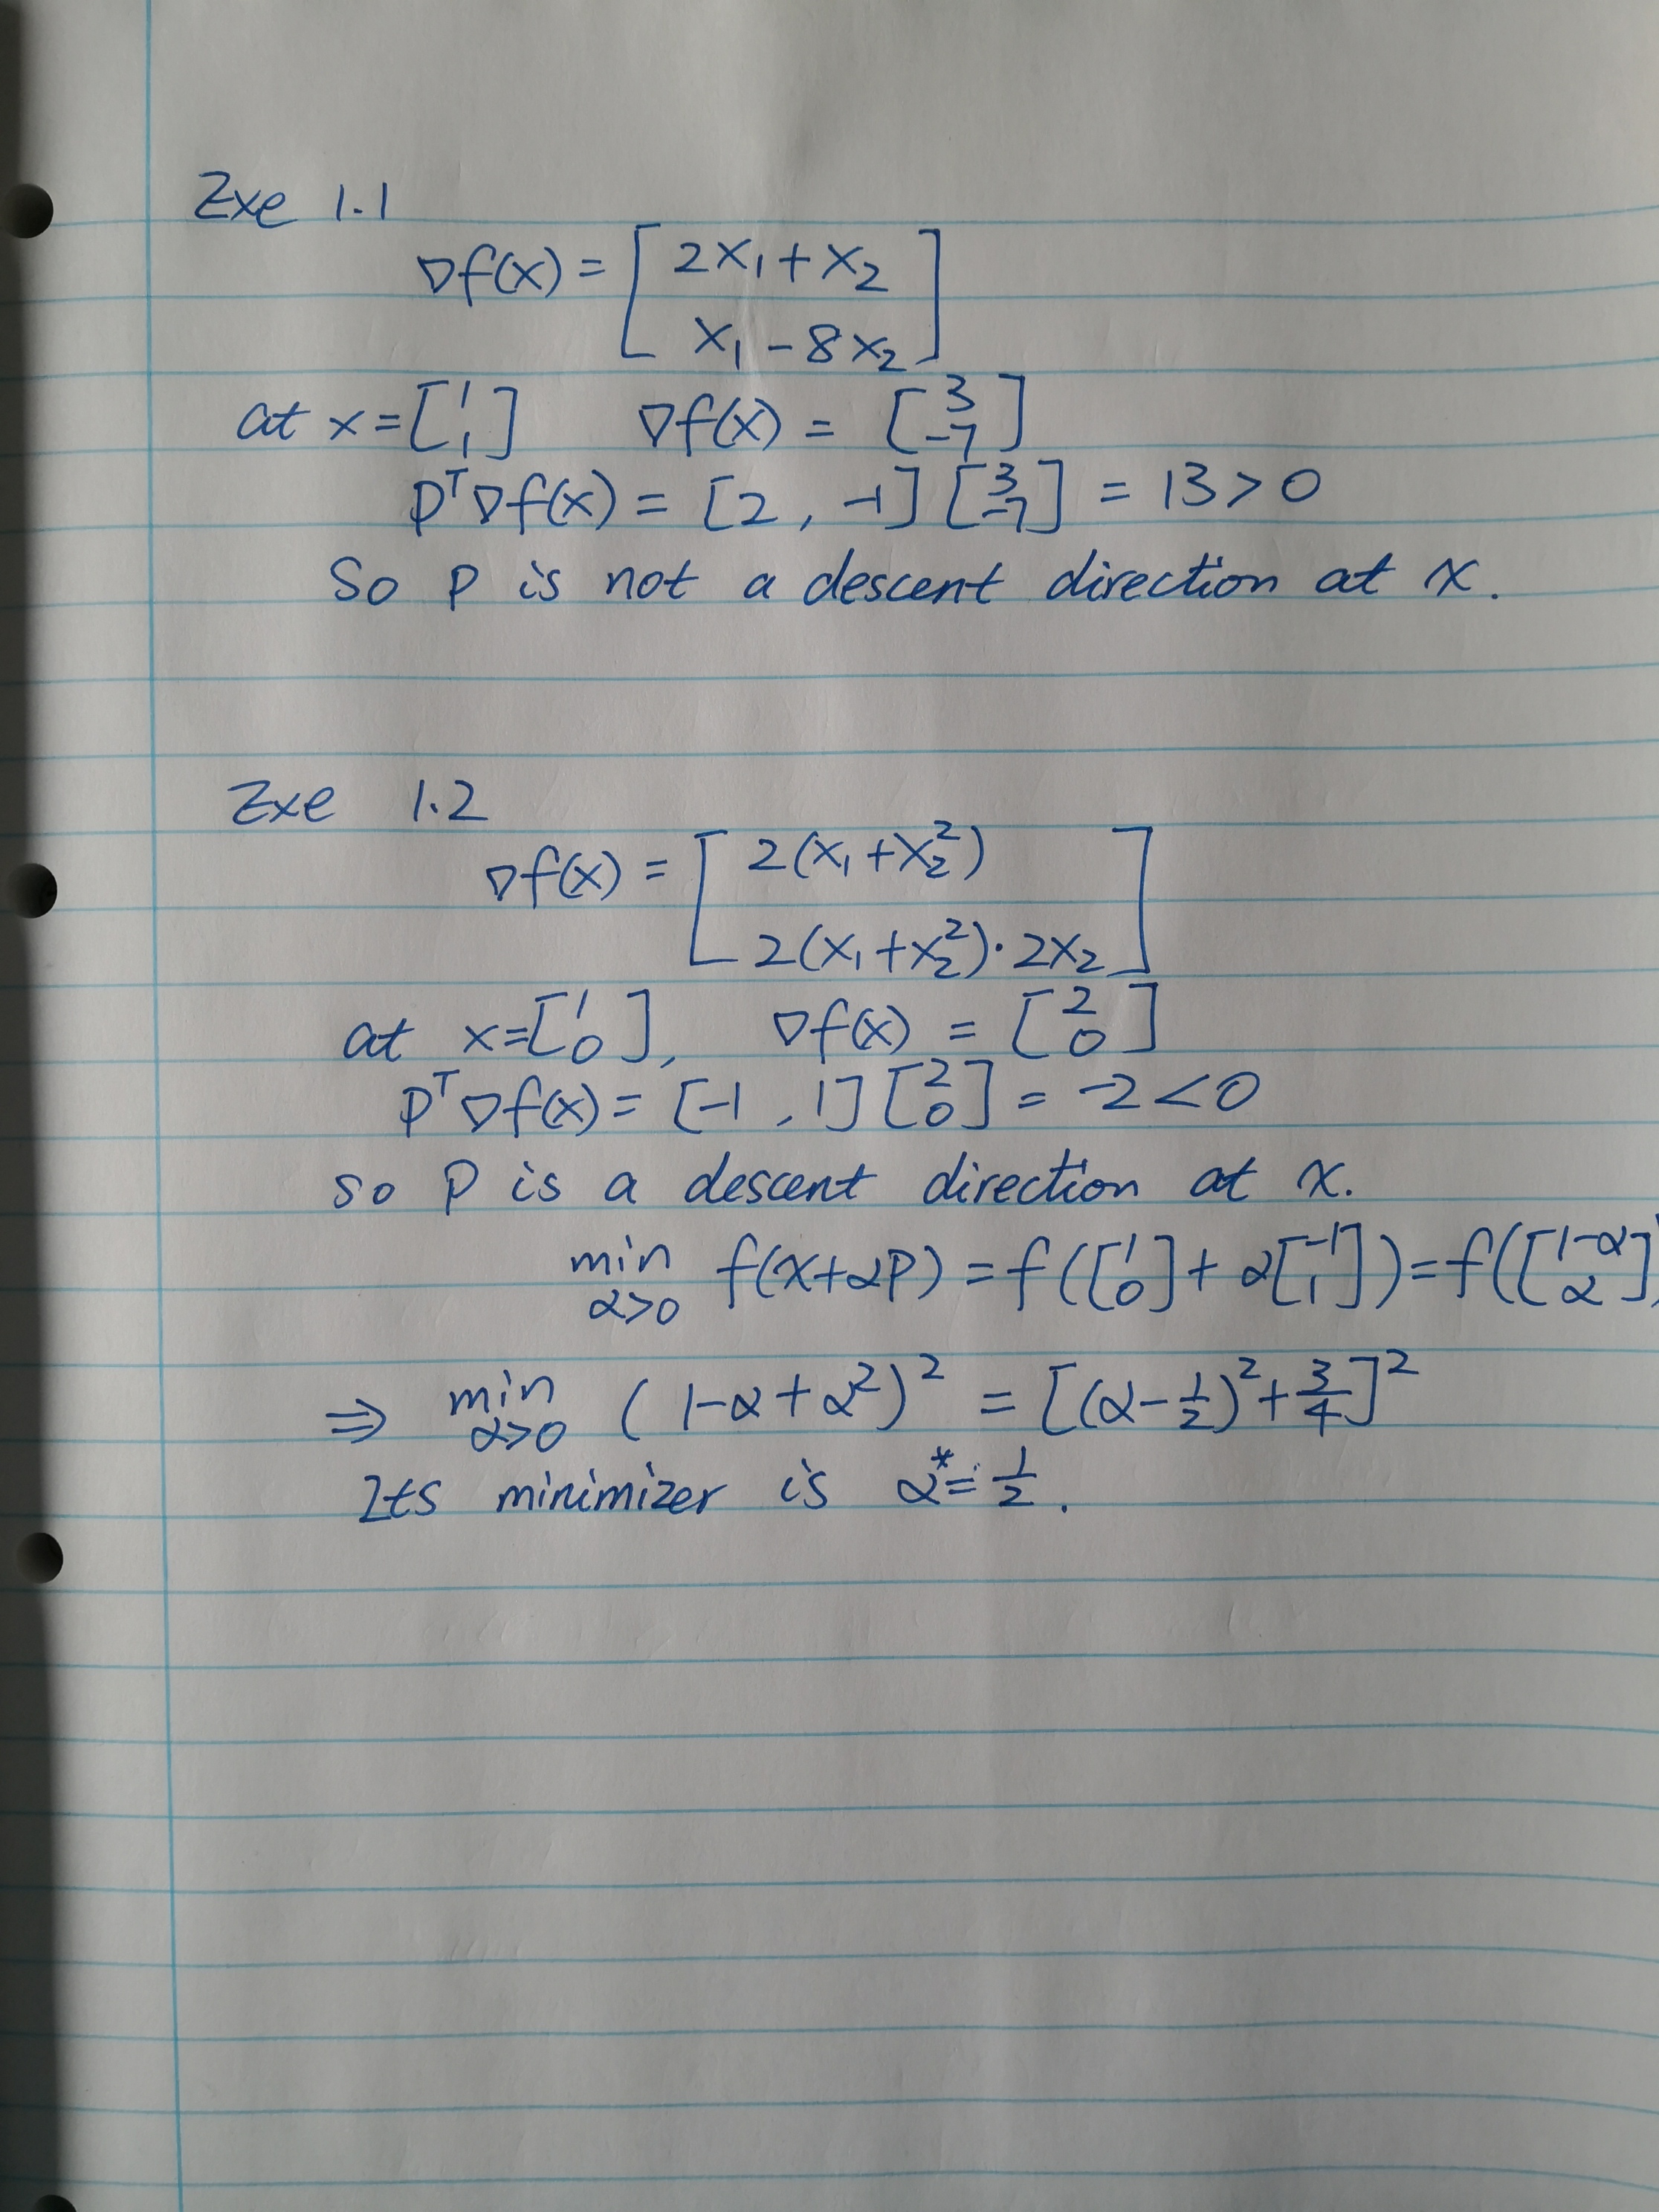 Exe 1.1
∇f(x) = [2x₁ + x₂; x₁ - 8x₂]
at x = [1; 1] ∇f(x) = [3; -7]
pᵀ∇f(x) = [2, -1] [3; -7] = 13 > 0
So p is not a descent direction at x.
Exe 1.2
∇f(x) = [2(x₁ + x₂²); 2(x₁ + x₂²)·2x₂]
at x = [1; 0], ∇f(x) = [2; 0]
pᵀ∇f(x) = [-1, 1] [2; 0] = -2 < 0
so p is a descent direction at x.
min_{α>0} f(x+αp) = f([1; 0] + α[-1; 1]) = f([1-α; α])
⇒ min_{α>0} (1-α+α²)² = [(α-1/2)² + 3/4]²
Its minimizer is α* = 1/2.